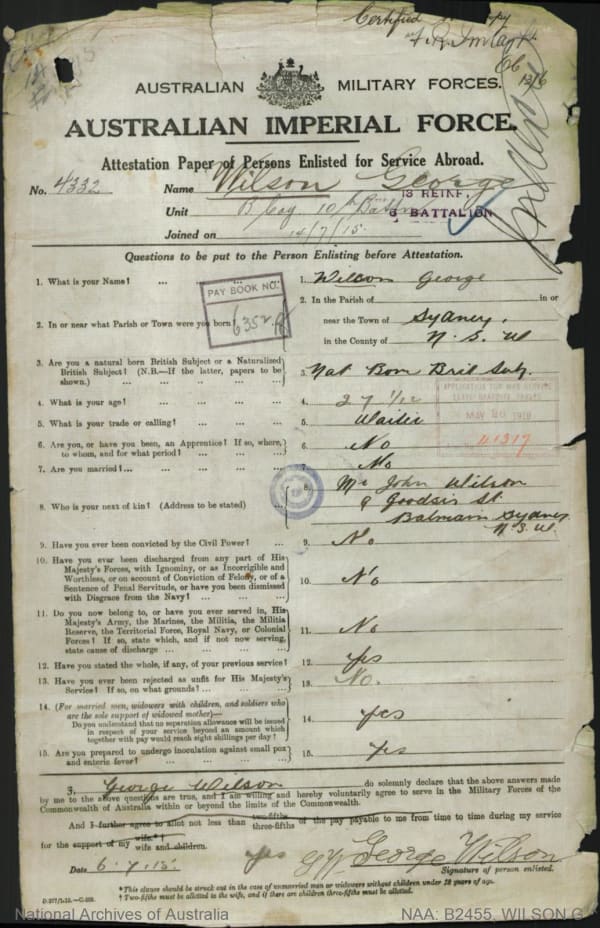 Certified Copy
AUSTRALIAN MILITARY FORCES.
AUSTRALIAN IMPERIAL FORCE.
Attestation Paper of Persons Enlisted for Service Abroad.
No. 4332 Name Wilson George
13 REINF
Unit B Coy 10th Battn 3 BATTALION
Joined on 14/7/15.
Questions to be put to the Person Enlisting before Attestation.
1. What is your Name? ... ... ... 1. Wilson George
PAY BOOK NO.
6352
2. In or near what Parish or Town were you born? 2. In the Parish of in or
near the Town of Sydney.
in the County of N. S. W
3. Are you a natural born British Subject or a Naturalized British Subject? (N.B.—If the latter, papers to be shown.) ... ... ... ... ... 3. Nat Born Brit Subj.
4. What is your age? ... ... ... ... 4. 27 1/12
5. What is your trade or calling? ... ... ... 5. Waiter
APPLICATION FOR WAR SERVICE
MAY 20 1919
41317
6. Are you, or have you been, an Apprentice? If so, where, to whom, and for what period? ... ... ... 6. No
7. Are you married?... ... ... ... ... 7. No
8. Who is your next of kin? (Address to be stated) ... 8. Mr John Wilson
9 Goodsir St
Balmain Sydney
N.S.W.
9. Have you ever been convicted by the Civil Power? ... 9. No
10. Have you ever been discharged from any part of His Majesty's Forces, with Ignominy, or as Incorrigible and Worthless, or on account of Conviction of Felony, or of a Sentence of Penal Servitude, or have you been dismissed with Disgrace from the Navy? ... ... 10. No
11. Do you now belong to, or have you ever served in, His Majesty's Army, the Marines, the Militia, the Militia Reserve, the Territorial Force, Royal Navy, or Colonial Forces? If so, state which, and if not now serving, state cause of discharge ... ... ... 11. No
12. Have you stated the whole, if any, of your previous service? 12. Yes
13. Have you ever been rejected as unfit for His Majesty's Service? If so, on what grounds? ... ... 13. No.
14. (For married men, widowers with children, and soldiers who are the sole support of widowed mother)—
Do you understand that no separation allowance will be issued in respect of your service beyond an amount which together with pay would reach eight shillings per day? 14. yes
15. Are you prepared to undergo inoculation against small pox and enteric fever? ... ... ... 15. Yes
I, George Wilson do solemnly declare that the above answers made
by me to the above questions are true, and I am willing and hereby voluntarily agree to serve in the Military Forces of the
Commonwealth of Australia within or beyond the limits of the Commonwealth.
And I further agree to allot not less than two-fifths three-fifths of the pay payable to me from time to time during my service
for the support of my wife wife and children.
Date 6.7.15. Yes GW George Wilson
Signature of person enlisted.
*This clause should be struck out in the case of unmarried men or widowers without children under 18 years of age.
† Two-fifths must be allotted to the wife, and if there are children three-fifths must be allotted.
National Archives of Australia NAA: B2455, WILSON G